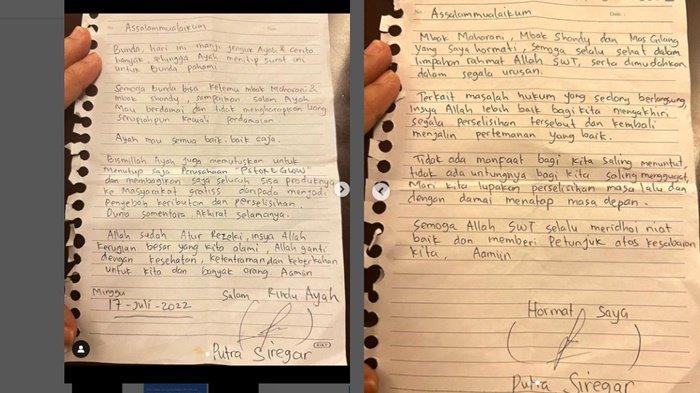 Assalammualaikum
Bunda, hari ini manji jenguk Ayah & cerita
banyak, sehingga Ayah menitip surat ini
untuk Bunda pahami
Semoga Bunda bisa ketemu mbak Maharani &
mbak Shondy, sampaikan salam Ayah
Mau berdamai dan tidak mengharapkan Uang
serupiahpun kecuali perdamaian.
Ayah mau semua baik-baik saja.
Bismillah Ayah juga memutuskan untuk
Menutup saja Perusahaan "PStore Glow"
dan membagikan saja seluruh sisa produknya
ke Masyarakat gratiss daripada menjadi
Penyebab keributan dan perselisihan.
Dunia sementara Akhirat selamanya.
Allah sudah Atur Rezeki, insya Allah
Kerugian besar yang kita alami, Allah ganti
dengan kesehatan, ketentraman dan keberkahan
untuk kita dan banyak orang. Aamiin
Minggu
17-Juli-2022
Salam Rindu Ayah
Putra Siregar
Assalammualaikum
Mbak Maharani, Mbak Shondy dan Mas Gilang
yang Saya hormati, Semoga selalu sehat dalam
limpahan rahmat Allah SWT, serta dimudahkan
dalam segala urusan.
Terkait masalah hukum yang sedang berlangsung,
insya Allah lebih baik bagi kita mengakhiri
segala Perselisihan tersebut dan kembali
menjalin pertemanan yang baik.
Tidak ada manfaat bagi kita saling menuntut,
tidak ada untungnya bagi kita saling menggugat,
Mari kita lupakan perselisihan masa lalu dan
dengan damai menatap masa depan.
Semoga Allah SWT selalu meridhoi niat
baik dan memberi Petunjuk atas kesalahan
kita, Aamiin
Hormat Saya
Putra Siregar